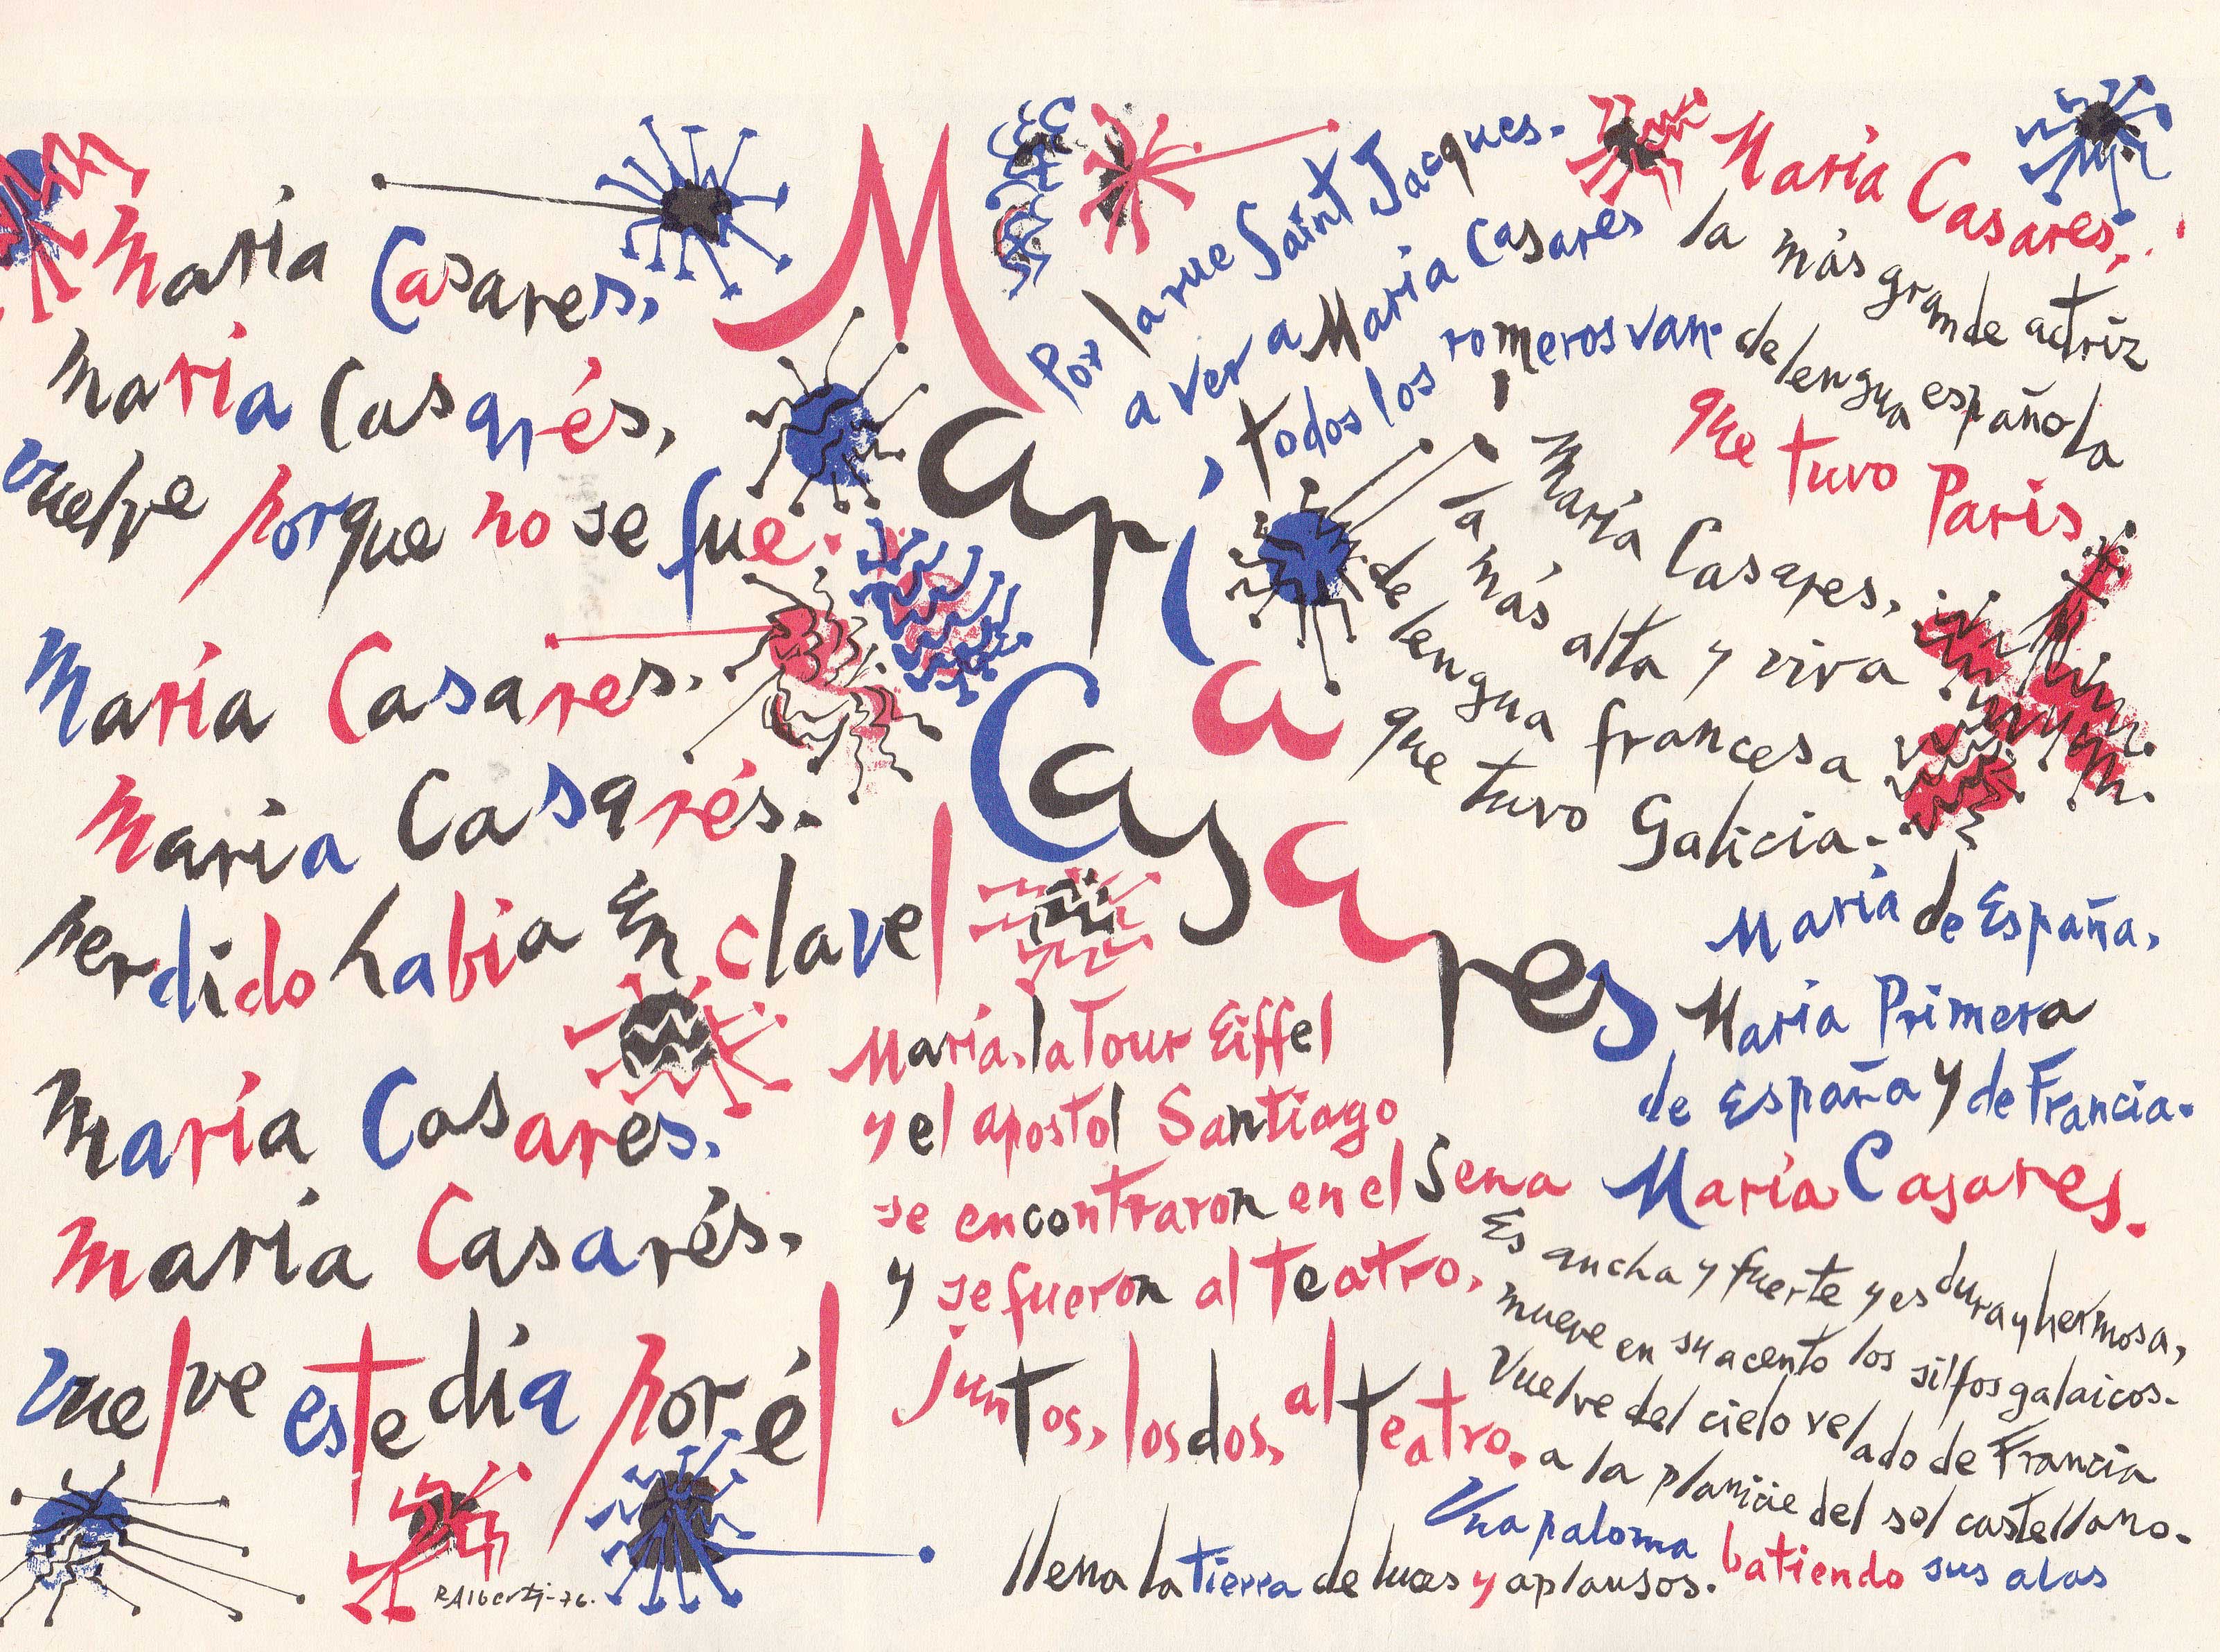 María Casares,
María Casarés,
vuelve porque no se fue.
María Casares.
María Casarés.
Perdido había un clavel
María Casares.
María Casarés.
Vuelve este día por él
R. Alberti-76.
María Casares
Por la rue Saint Jacques.
a ver a María Casares
todos los romeros van.
María Casares,
la más grande actriz
de lengua española
que tuvo París
María Casares,
la más alta y viva
de lengua francesa
que tuvo Galicia.
María de España,
María Primera
de España y de Francia.
María Casares.
María, la Tour Eiffel
y el apostol Santiago
se encontraron en el Sena
y se fueron al teatro,
juntos, los dos, al teatro.
Es ancha y fuerte y es dura y hermosa,
mueve en su acento los silfos galaicos.
Vuelve del cielo velado de Francia
a la planicie del sol castellano.
Una paloma batiendo sus alas
llena la tierra de luces y aplausos.